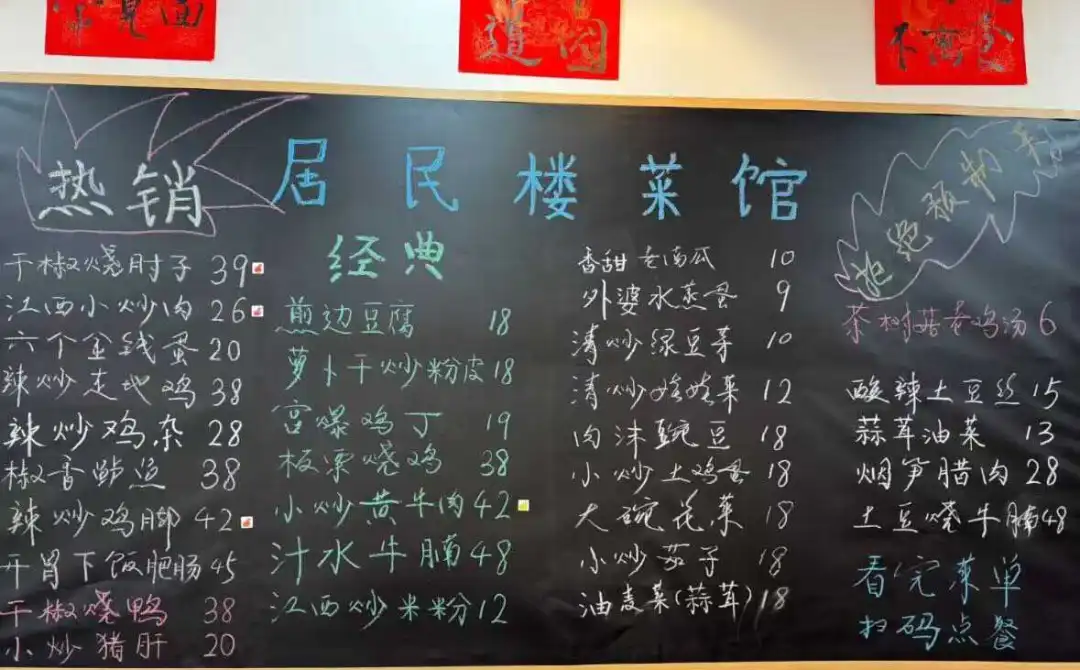 见面
道园
不离
居民楼菜馆
热销
干椒烧肘子 39
江西小炒肉 26
六个金钱蛋 20
辣炒走地鸡 38
辣炒鸡杂 28
椒香鲈鱼 38
辣炒鸡脚 42
开胃下饭肥肠 45
干椒烧鸭 38
小炒猪肝 20
经典
煎边豆腐 18
萝卜干炒粉皮 18
宫爆鸡丁 19
板栗烧鸡 38
小炒黄牛肉 42
汁水牛腩 48
江西炒米粉 12
香甜老南瓜 10
外婆水蒸蛋 9
清炒绿豆芽 10
清炒娃娃菜 12
肉沫豌豆 18
小炒土鸡蛋 18
大碗花菜 18
小炒茄子 18
油麦菜(蒜茸) 18
拒绝预制菜
茶树菇老鸡汤 6
酸辣土豆丝 15
蒜茸油菜 13
烟笋腊肉 28
土豆烧牛腩 48
看完菜单
扫码点餐